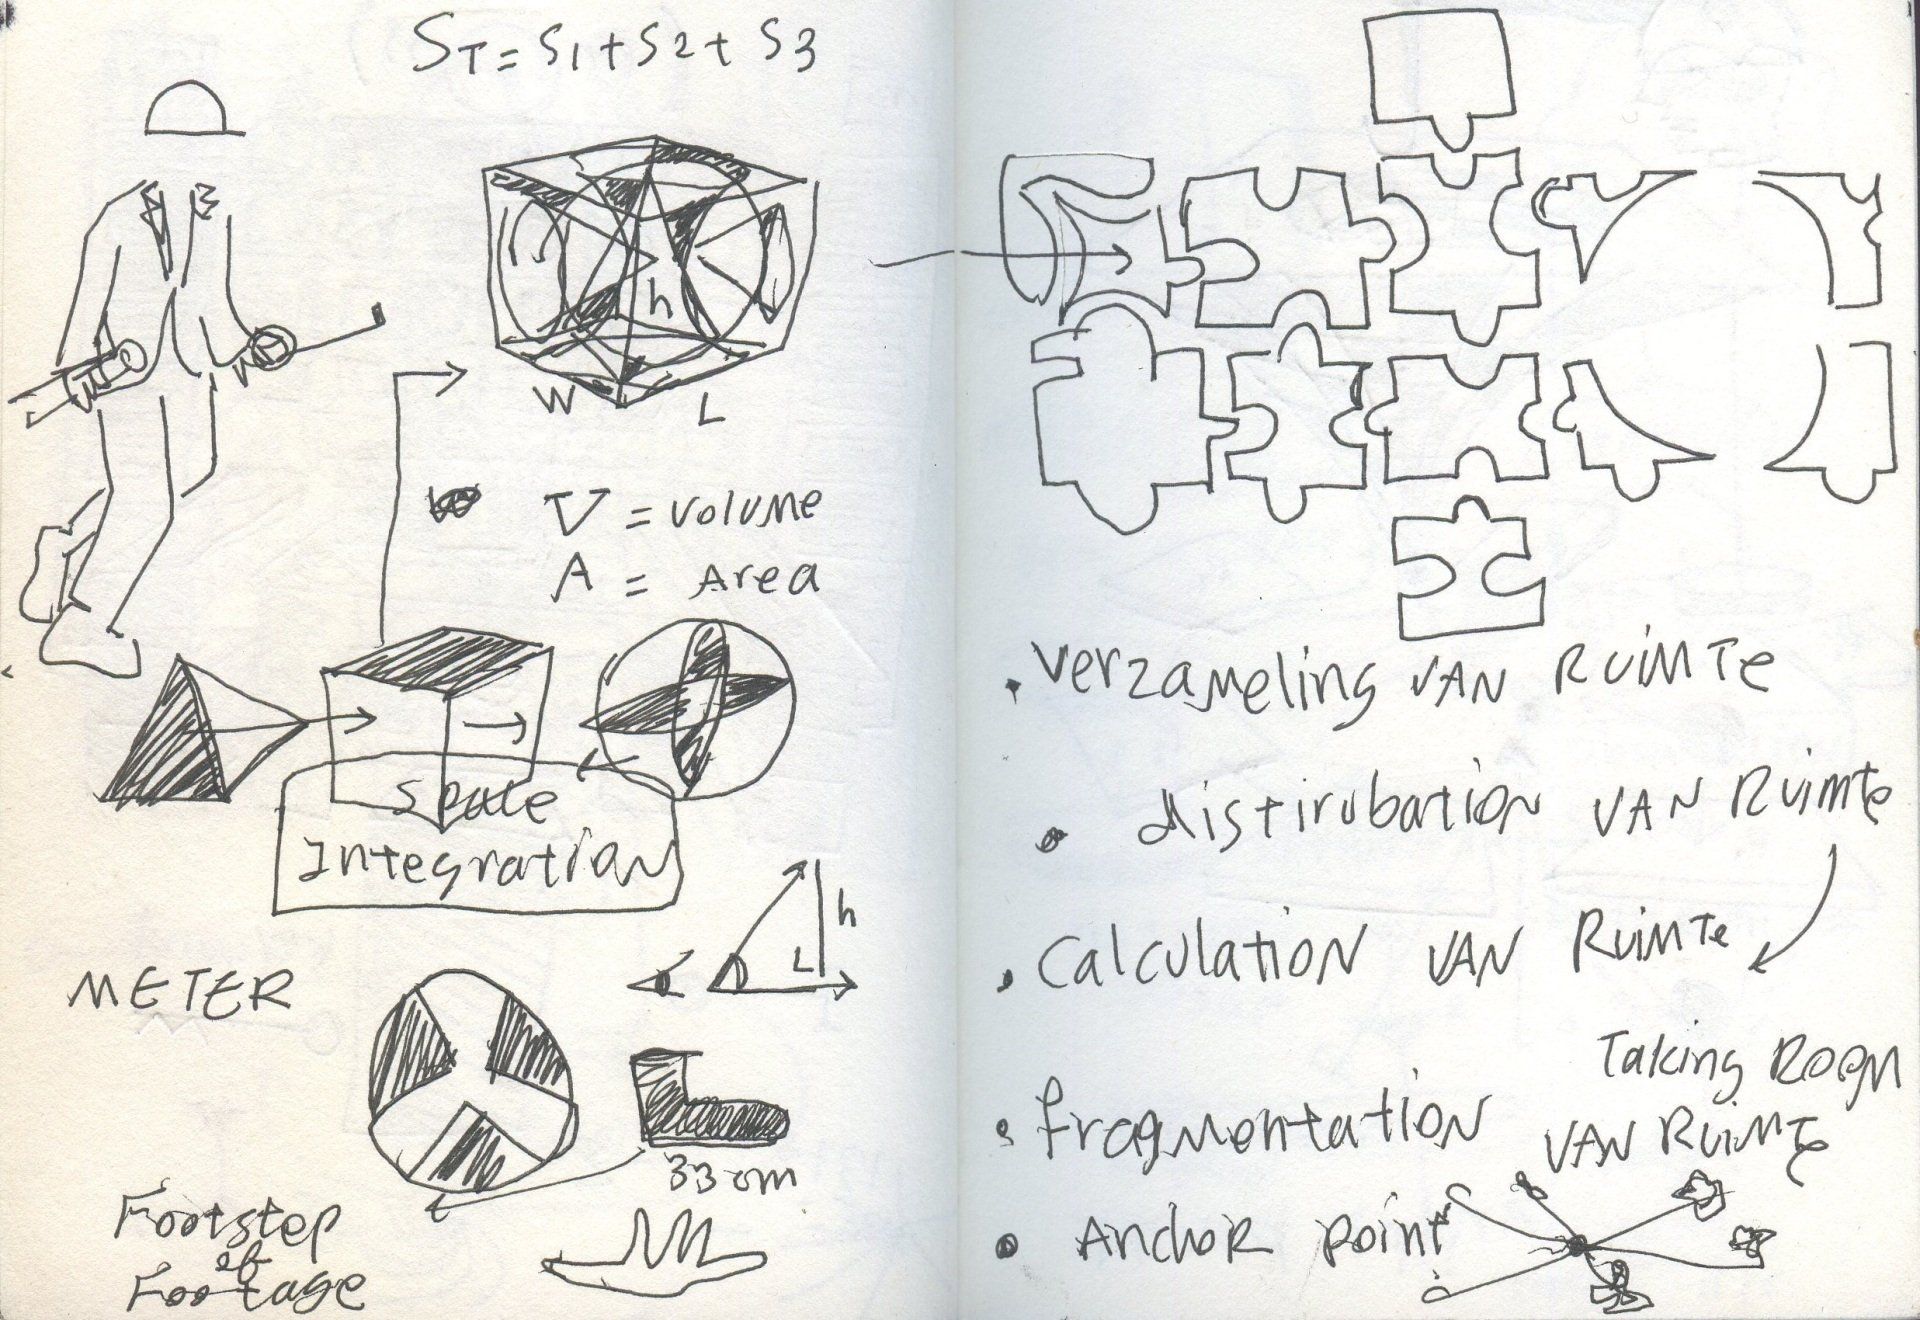 ST = S1 + S2 + S3
h
W
L
V = volume
A = Area
Space
Integration
h
L
METER
33 cm
Footstep
of
Footage
Verzameling VAN Ruimte
distirubation VAN Ruimte
Calculation VAN Ruimte
Taking Room
fragmentation VAN Ruimte
Anchor point